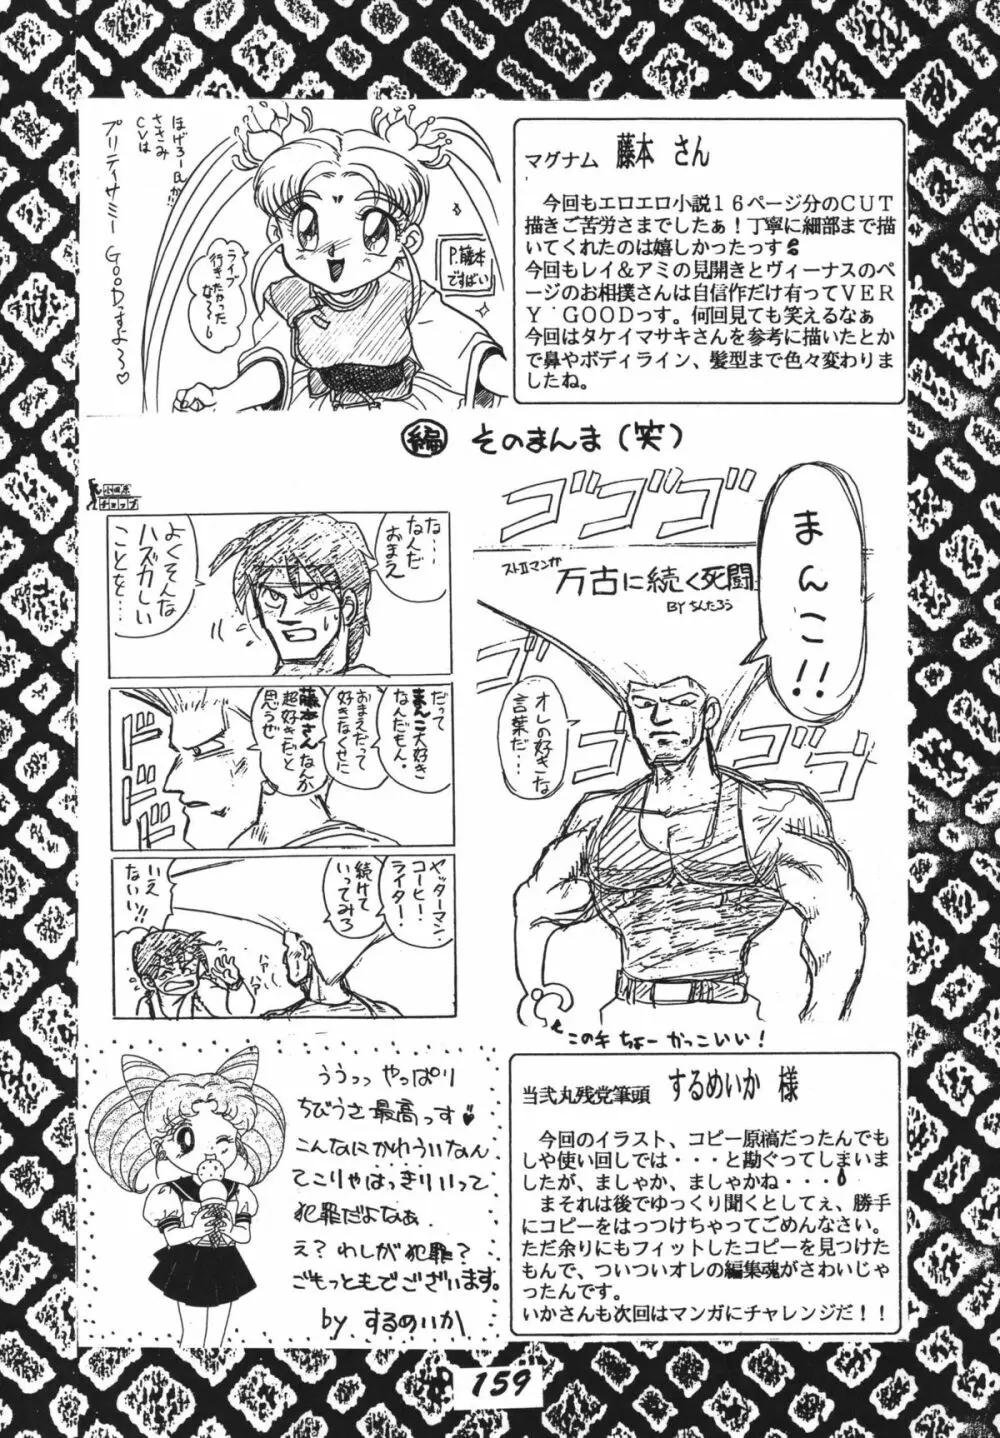 ほげろーBか
ささきみ
CVは
プリティサミー GOODっすよ〜♡
ライブ
行きたかった
な〜〜
P.藤本
ですばい
マグナム 藤本 さん
今回もエロエロ小説16ページ分のCUT
描きご苦労さまでしたぁ!丁寧に細部まで描
いてくれたのは嬉しかったっす
今回もレイ&アミの見開きとヴィーナスのペ
ージのお相撲さんは自信作だけ有ってVER
Y GOODっす。何回見ても笑えるなぁ
今回はタケイマサキさんを参考に描いたとか
で鼻やボディライン、髪型まで色々変わりま
したね。
編 そのまんま(笑)
小田原
チョップ
な…
なんだ
おまえ
よくそんな
ハズカしい
ことを…
だって
まんこ大好き
なんだもん。
おまえだって
好きなくせに
藤本さんなんか
超好きだと
思うぜ
ドドド
ヤッターマン
コーヒー!
ライター!
続けて
いってみろ
いえ
ないい!!
ハァー
ハァー
ゴゴゴ
まんこ!!
ストIIマンガ
万古に続く死闘
BY らんたろう
オレの好きな
言葉だ…
ゴゴ
ゴゴ
この手 ちょー かっこいい!
ううっっ やっぱり
ちびうさ最高っす♥
こんなにかわういなん
てこりゃはっきりいって
犯罪だよなぁ.
え?わしが犯罪?
ごもっともでございます。
by するめいか
当弐丸残党筆頭 するめいか 様
今回のイラスト、コピー原稿だったんでも
しや使い回しでは・・・と勘ぐってしまいま
したが、ましゃか、ましゃかね・・・
まそれは後でゆっくり聞くとしてぇ、勝手
にコピーをはっつけちゃってごめんなさい。
ただ余りにもフィットしたコピーを見つけた
もんで、ついついオレの編集魂がさわいじゃ
ったんです。
いかさんも次回はマンガにチャレンジだ!!
159